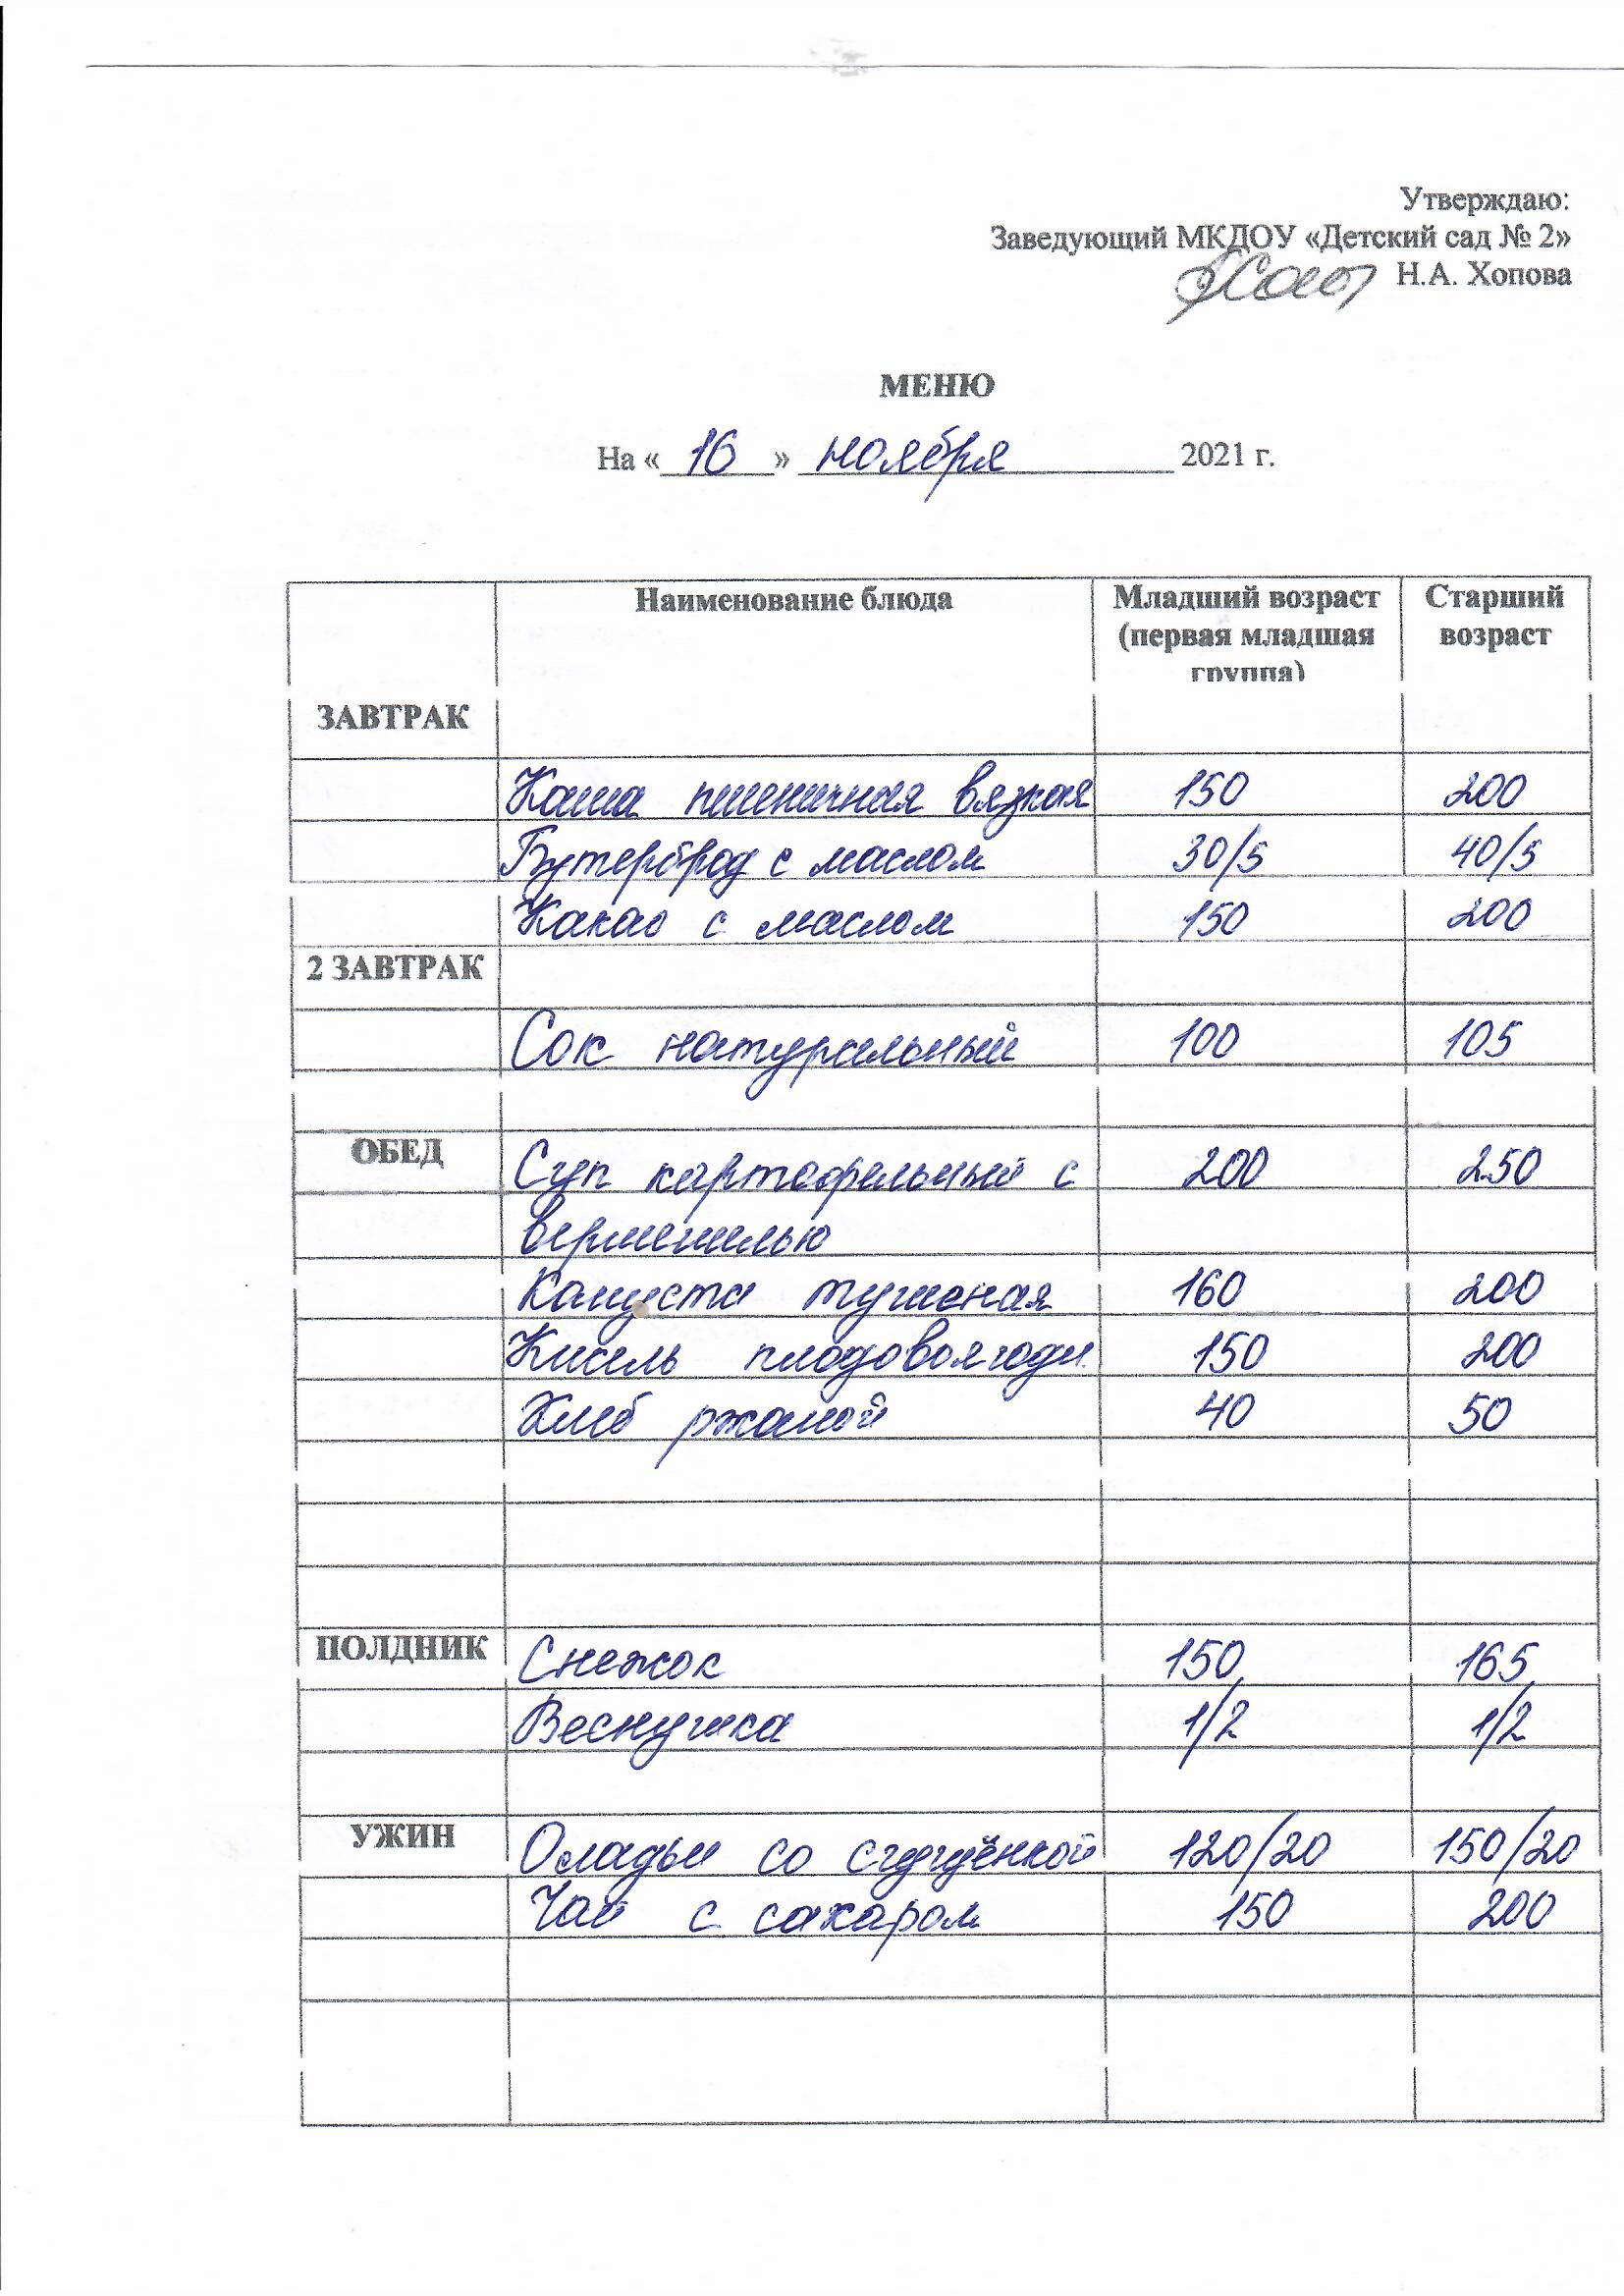 Утверждаю:
Заведующий МКДОУ «Детский сад № 2»
Н.А. Хопова
МЕНЮ
На « 16 » ноября 2021 г.
Наименование блюда Младший возраст (первая младшая группа) Старший возраст
ЗАВТРАК
Каша пшеничная вязкая 150 200
Бутерброд с маслом 30/5 40/5
Какао с маслом 150 200
2 ЗАВТРАК
Сок натуральный 100 105
ОБЕД Суп картофельный с 200 250
вермешелью
Капуста тушеная 160 200
Кисель плодовоягодн. 150 200
Хлеб ржаной 40 50
ПОЛДНИК Снежок 150 165
Веснушка 1/2 1/2
УЖИН Оладьи со сгущёнкой 120/20 150/20
Чай с сахаром 150 200